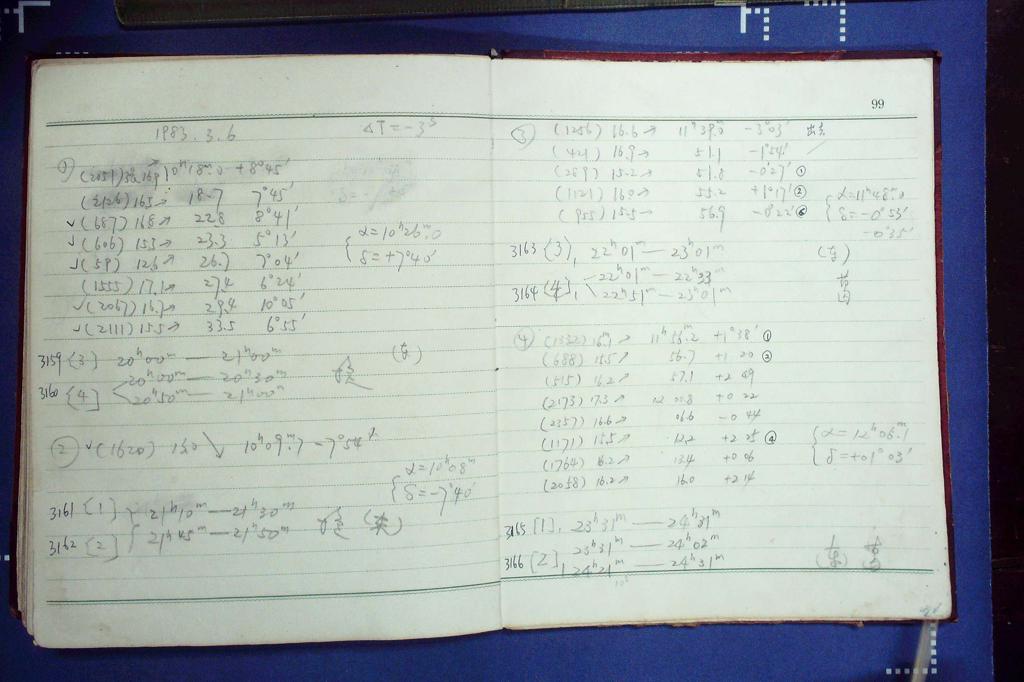 1983. 3. 6 ΔT = -3ˢ
① (2051) 16.9 10ʰ18ᵐ.0 +8°45′
(2126) 16.5 ↗ 18.7 7°45′
✓(687) 16.8 ↗ 22.8 8°41′
✓(606) 15.3 ↗ 23.3 5°13′
α = 10ʰ26ᵐ.0
✓(59) 12.6 ↗ 26.7 7°04′
δ = +7°40′
(1555) 17.1 ↗ 27.4 6°24′
✓(2067) 16.7 ↗ 29.4 10°05′
✓(2111) 15.5 ↗ 33.5 6°55′
3159 {3} 20ʰ00ᵐ — 21ʰ00ᵐ
3160 {4} 20ʰ00ᵐ — 20ʰ30ᵐ
20ʰ50ᵐ — 21ʰ00ᵐ
② ✓(1620) 15.0 ↘ 10ʰ09ᵐ.7 -7°54′
α = 10ʰ08ᵐ
δ = -7°40′
3161 {1} 21ʰ10ᵐ — 21ʰ30ᵐ
3162 {2} 21ʰ45ᵐ — 21ʰ50ᵐ
99
③ (1256) 16.6 ↗ 11ʰ39ᵐ.0 -3°03′
(421) 16.9 ↗ 51.1 -1°54′
(289) 15.2 ↗ 51.8 -0°27′ ①
(1121) 16.0 ↗ 55.2 +1°17′ ②
α = 11ʰ48ᵐ.0
(955) 15.5 ↗ 56.9 -0°22′
δ = -0°53′
-0°35′
3163 {3}, 22ʰ01ᵐ — 23ʰ01ᵐ
22ʰ01ᵐ — 22ʰ33ᵐ
3164 {4}, 22ʰ51ᵐ — 23ʰ01ᵐ
④ (1332) 16ᵐ.1 ↗ 11ʰ53ᵐ.2 +1°38′ ①
(688) 15.5 ↗ 56.7 +1 20 ②
(515) 16.2 ↗ 57.1 +2 49
(2173) 17.3 ↗ 12 01.8 +0 22
(2357) 16.6 ↗ 06.6 -0 44
(1171) 15.5 ↗ 12.2 +2 25 ④
α = 12ʰ06ᵐ.1
(1764) 16.2 ↗ 13.4 +0 06
δ = +01°03′
(2058) 16.2 ↗ 16.0 +2 14
3165 [1], 23ʰ31ᵐ — 24ʰ31ᵐ
23ʰ31ᵐ — 24ʰ02ᵐ
3166 [2], 24ʰ21ᵐ — 24ʰ31ᵐ